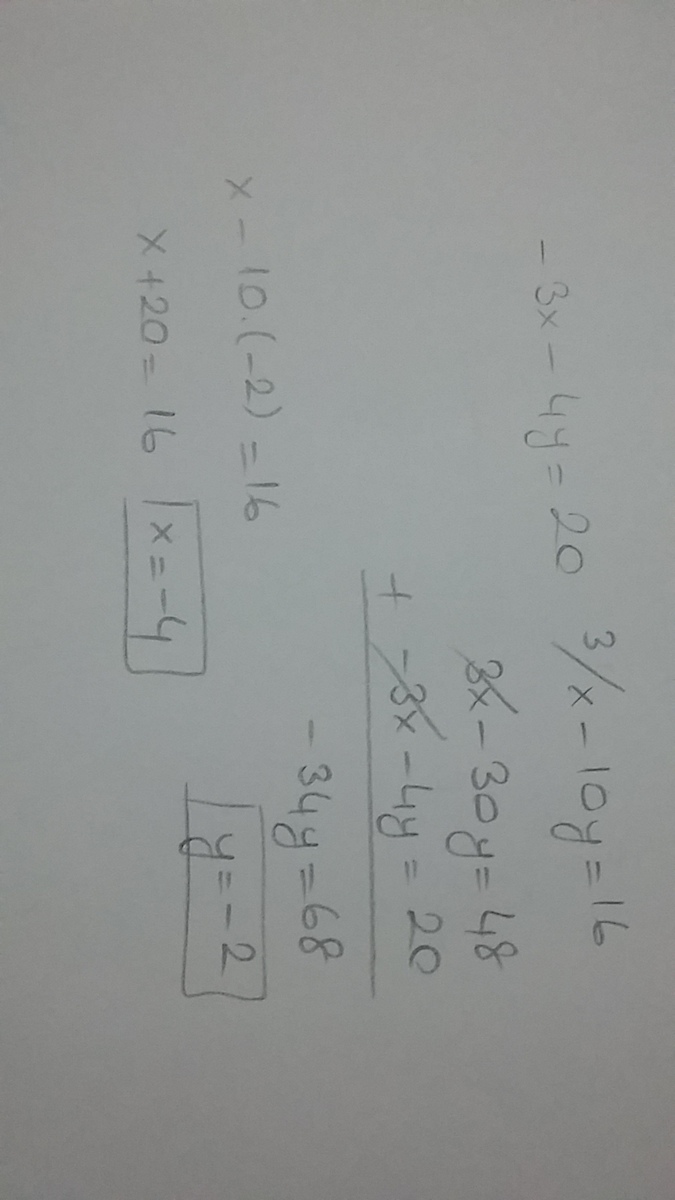 3/x - 10y = 16
-3x - 4y = 20
3x - 30y = 48
+ -3x - 4y = 20
-34y = 68
y = -2
x - 10.(-2) = 16
x + 20 = 16
x = -4